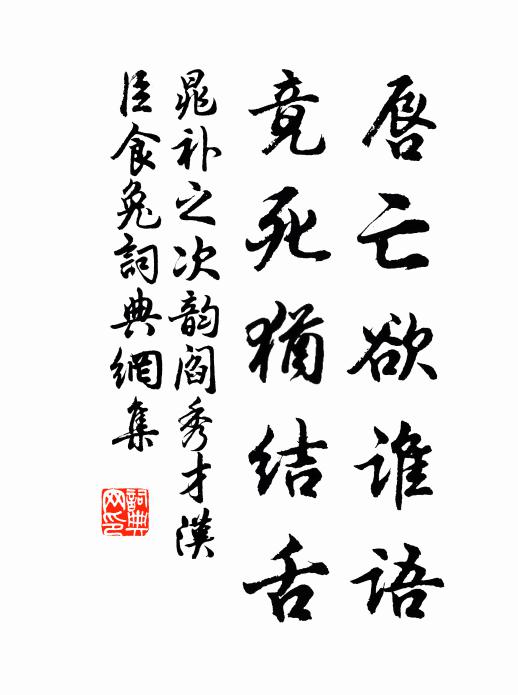 唇亡欲谁语
竟死犹结舌
晁补之次韵阎秀才汉
臣食兔詞典網集
詞典网印